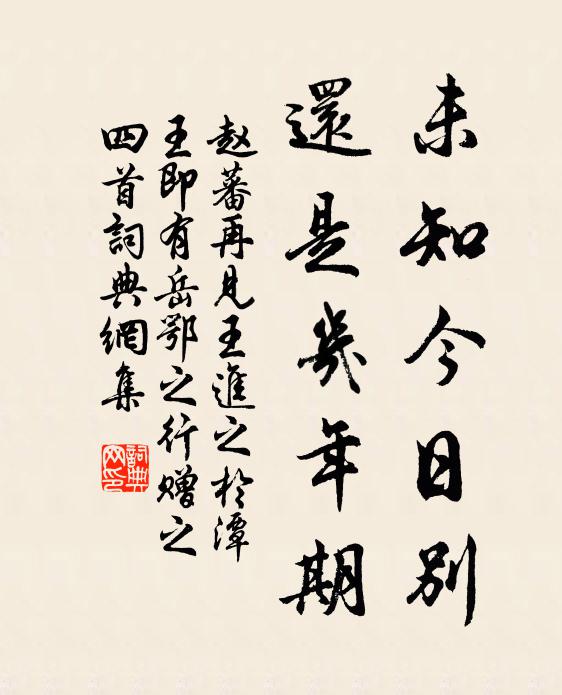 未知今日別
還是幾年期
赵蕃再見王進之於潭
王即有岳鄂之行赠之
四首詞典網集
詞典网印